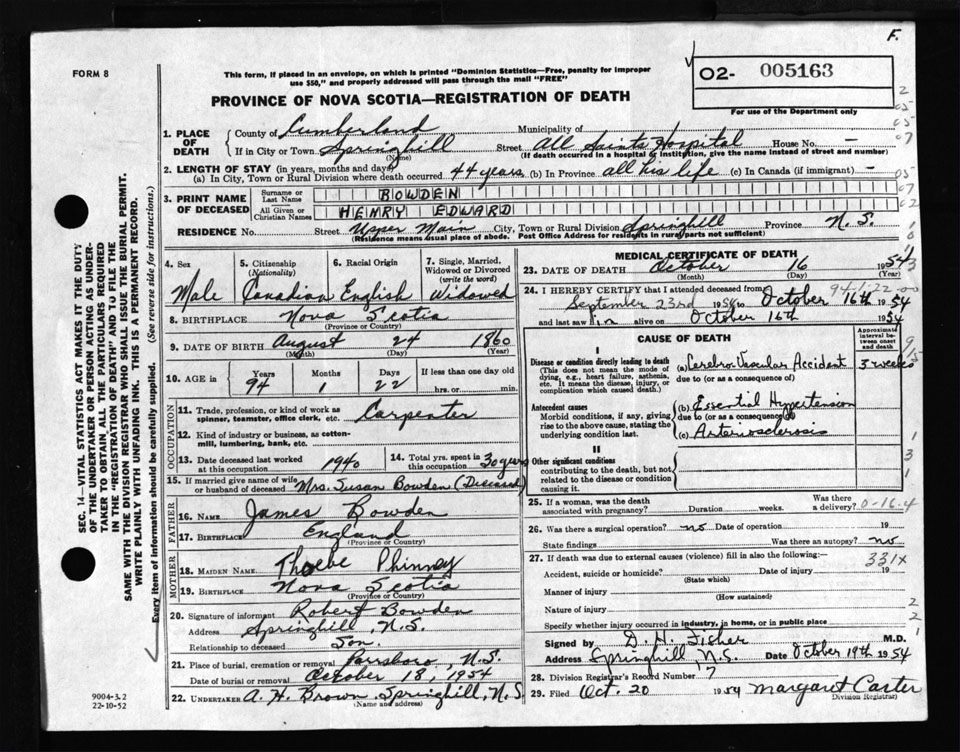 F.
FORM 8
This form, if placed in an envelope, on which is printed "Dominion Statistics—Free, penalty for improper
use $50," and properly addressed will pass through the mail "FREE"
02- 005163
For use of the Department only
PROVINCE OF NOVA SCOTIA—REGISTRATION OF DEATH
1. PLACE OF DEATH
County of Cumberland Municipality of
If in City or Town Springhill Street All Saints Hospital House No. —
(Name) (If death occurred in a hospital or institution, give the name instead of street and number)
2. LENGTH OF STAY (in years, months and days)
(a) In City, Town or Rural Division where death occurred 44 years (b) In Province all his life (c) In Canada (if immigrant) —
3. PRINT NAME OF DECEASED
Surname or Last Name BOWDEN
All Given or Christian Names HENRY EDWARD
RESIDENCE No. Street Upper Main City, Town or Rural Division Springhill Province N.S.
(Residence means usual place of abode. Post Office Address for residents in rural parts not sufficient)
4. Sex
Male
5. Citizenship
(Nationality)
Canadian
6. Racial Origin
English
7. Single, Married, Widowed or Divorced
(write the word)
Widowed
8. BIRTHPLACE Nova Scotia
(Province or Country)
9. DATE OF BIRTH August 24 1860
(Month) (Day) (Year)
10. AGE in Years Months Days If less than one day old
94 1 22 hrs. or min.
OCCUPATION
11. Trade, profession, or kind of work as
spinner, teamster, office clerk, etc. Carpenter
12. Kind of industry or business, as cotton-
mill, lumbering, bank, etc.
13. Date deceased last worked
at this occupation 1940
14. Total yrs. spent in
this occupation 30 years
15. If married give name of wife
or husband of deceased Mrs. Susan Bowden (Deceased)
FATHER
16. NAME James Bowden
17. BIRTHPLACE England
(Province or Country)
MOTHER
18. MAIDEN NAME Thoebe Phinney
19. BIRTHPLACE Nova Scotia
(Province or Country)
20. Signature of informant Robert Bowden
Address Springhill, N.S.
Relationship to deceased Son.
21. Place of burial, cremation or removal Parrsboro, N.S.
Date of burial or removal October 18, 1954
22. UNDERTAKER A. H. Brown Springhill, N.S.
(Name and address)
MEDICAL CERTIFICATE OF DEATH
23. DATE OF DEATH October 16 1954
(Month) (Day) (Year)
94-1-22-00
24. I HEREBY CERTIFY that I attended deceased from
September 23rd 1954 to October 16th 1954
and last saw him alive on October 16th 1954
CAUSE OF DEATH
Approximate interval between onset and death
I
Disease or condition directly leading to death
(This does not mean the mode of
dying, e.g., heart failure, asthenia,
etc. It means the disease, injury, or
complication which caused death.)
(a) Cerebro Vascular Accident 3 weeks
due to (or as a consequence of)
Antecedent causes
Morbid conditions, if any, giving
rise to the above cause, stating the
underlying condition last.
(b) Essential Hypertension
due to (or as a consequence of)
(c) Arteriosclerosis
II
Other significant conditions
contributing to the death, but not
related to the disease or condition
causing it.
25. If a woman, was the death
associated with pregnancy? Duration weeks. Was there a delivery?
0-16.4
26. Was there a surgical operation? no Date of operation 19
State findings Was there an autopsy? no
27. If death was due to external causes (violence) fill in also the following:—
331x
Accident, suicide or homicide? Date of injury 19
(State which)
Manner of injury
(How sustained)
Nature of injury
Specify whether injury occurred in industry, in home, or in public place
Signed by D. H. Fisher M.D.
Address Springhill, N.S. Date October 19th 1954
28. Division Registrar's Record Number 7
29. Filed Oct. 20 1954 Margaret Carter
Division Registrar
SEC. 14—VITAL STATISTICS ACT MAKES IT THE DUTY
OF THE UNDERTAKER OR PERSON ACTING AS UNDER-
TAKER TO OBTAIN ALL THE PARTICULARS REQUIRED
IN THE "REGISTRATION OF DEATH" AND TO FILE THE
SAME WITH THE DIVISION REGISTRAR WHO SHALL ISSUE THE BURIAL PERMIT.
WRITE PLAINLY WITH UNFADING INK. THIS IS A PERMANENT RECORD.
Every item of information should be carefully supplied. (See reverse side for instructions.)
9004-3.2
22-10-52